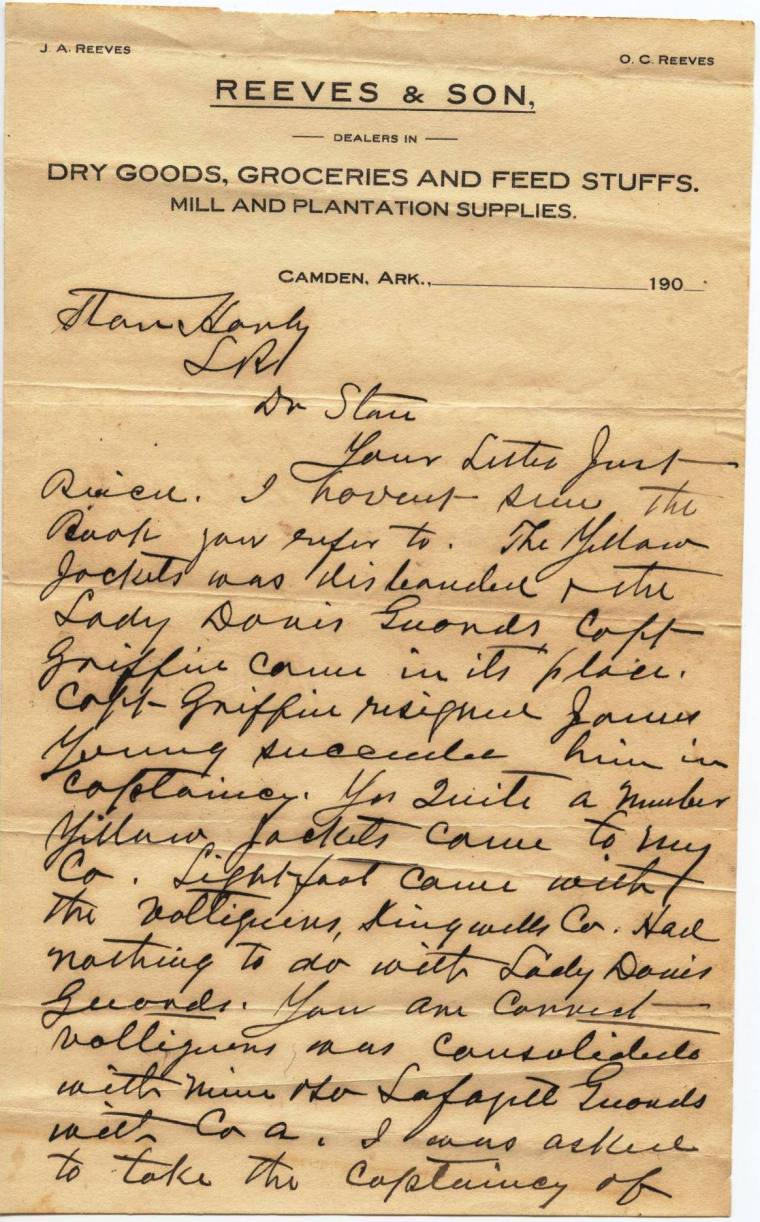 J. A. REEVES
O. C. REEVES
REEVES & SON,
DEALERS IN
DRY GOODS, GROCERIES AND FEED STUFFS.
MILL AND PLANTATION SUPPLIES.
CAMDEN, ARK., 190
Stan Harly
L R
Dr Stan
Your Letter Just
Recd. I havent seen the
Book you refer to. The Yellow
Jackets was disbanded & the
Lady Davis Guards Capt
Griffin came in its place.
Capt Griffin resigned James
Young succeeded him in
Captaincy. Yes Quite a number
Yellow Jackets came to my
Co. Lightfoot came with
the Voltiguers, Kingwells Co. Had
nothing to do with Lady Davis
Guards. You are Correct
Volliguers was Consolidated
with mine also Lafayett Guards
with Co a. I was asked
to take the Captaincy of